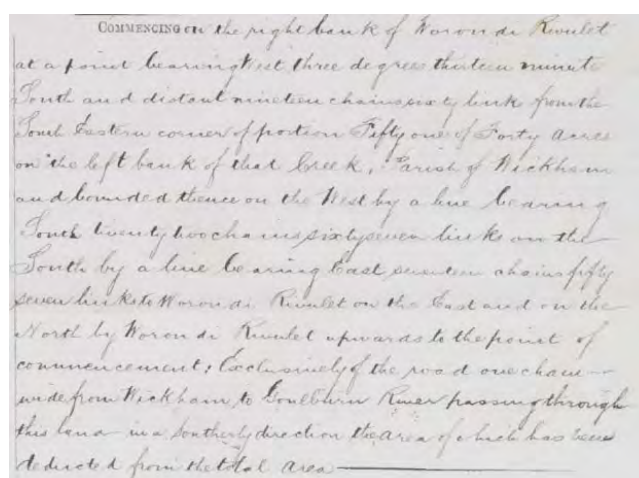 COMMENCING on the right bank of Worondi Rivulet
at a point bearing West three degrees thirteen minute
South and distant nineteen chains sixty links from the
South Eastern corner of portion Fifty one of Forty Acres
on the left bank of that Creek, Parish of Wickham
and bounded thence on the West by a line bearing
South twenty two chains sixty seven links on the
South by a line bearing East seventeen chains fifty
seven links to Worondi Rivulet on the East and on the
North by Worondi Rivulet upwards to the point of
commencement; Exclusively of the road one chain
wide from Wickham to Goulburn River passing through
this land in a Southerly direction the area of which has been
deducted from the total area